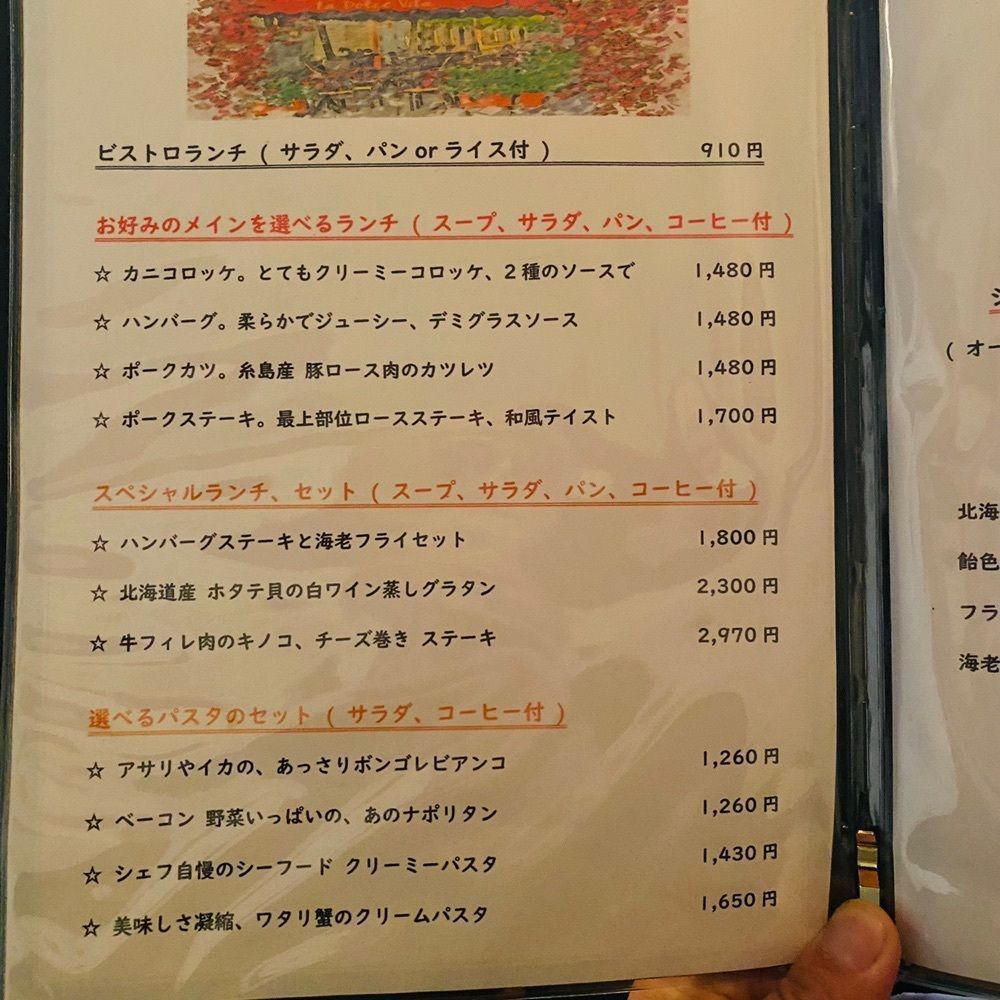 La Dolce Vita
ビストロランチ ( サラダ、パン or ライス付 ) 910円
お好みのメインを選べるランチ ( スープ、サラダ、パン、コーヒー付 )
☆ カニコロッケ。とてもクリーミーコロッケ、2種のソースで 1,480円
☆ ハンバーグ。柔らかでジューシー、デミグラスソース 1,480円
☆ ポークカツ。糸島産 豚ロース肉のカツレツ 1,480円
☆ ポークステーキ。最上部位ロースステーキ、和風テイスト 1,700円
スペシャルランチ、セット ( スープ、サラダ、パン、コーヒー付 )
☆ ハンバーグステーキと海老フライセット 1,800円
☆ 北海道産 ホタテ貝の白ワイン蒸しグラタン 2,300円
☆ 牛フィレ肉のキノコ、チーズ巻き ステーキ 2,970円
選べるパスタのセット ( サラダ、コーヒー付 )
☆ アサリやイカの、あっさりボンゴレビアンコ 1,260円
☆ ベーコン 野菜いっぱいの、あのナポリタン 1,260円
☆ シェフ自慢のシーフード クリーミーパスタ 1,430円
☆ 美味しさ凝縮、ワタリ蟹のクリームパスタ 1,650円
( オー
北海
飴色
フラ
海老